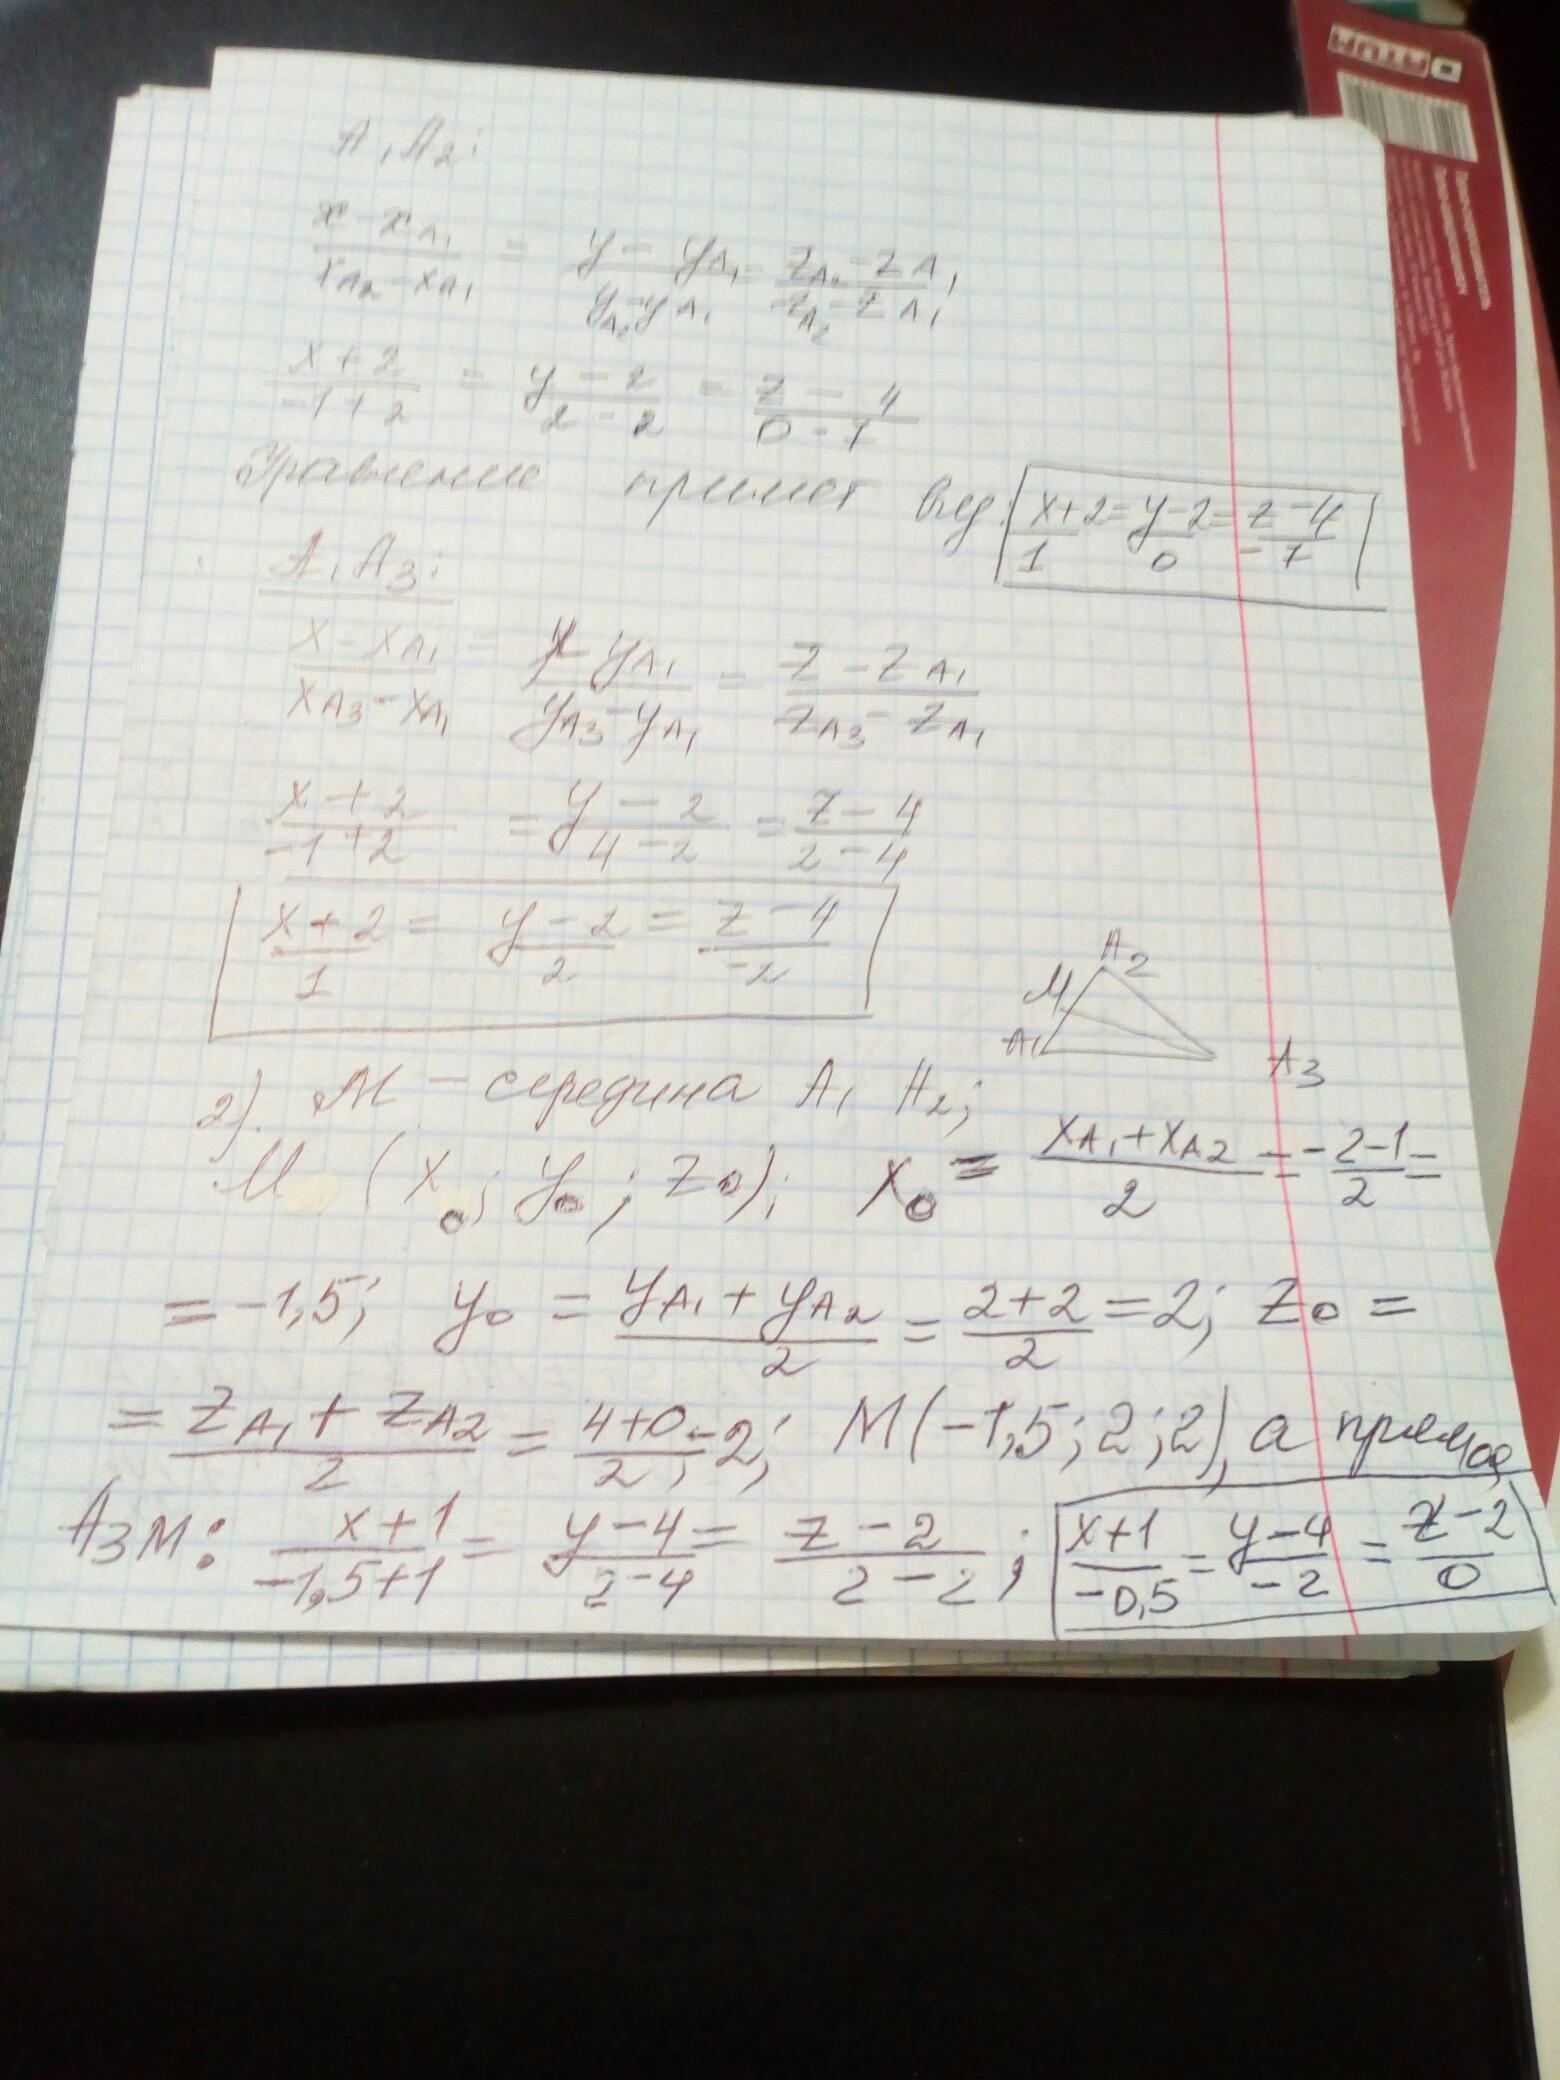 A₁A₂:
(x - x_A₁)/(x_A₂ - x_A₁) = (y - y_A₁)/(y_A₂ - y_A₁) = (z_A₂ - z_A₁)/(-z_A₂ - z_A₁)
(x + 2)/(-1 + 2) = (y - 2)/(2 - 2) = (z - 4)/(0 - 7)
Уравнение примет вид: (x + 2)/1 = (y - 2)/0 = (z - 4)/(-7)
A₁A₃:
(x - x_A₁)/(x_A₃ - x_A₁) = (y - y_A₁)/(y_A₃ - y_A₁) = (z - z_A₁)/(z_A₃ - z_A₁)
(x + 2)/(-1 + 2) = (y - 2)/(4 - 2) = (z - 4)/(2 - 4)
(x + 2)/1 = (y - 2)/2 = (z - 4)/(-2)
A₂
M
A₁
A₃
2). M - середина A₁ A₂;
M (x₀; y₀; z₀); x₀ = (x_A₁ + x_A₂)/2 = (-2 - 1)/2 =
= -1,5; y₀ = (y_A₁ + y_A₂)/2 = (2 + 2)/2 = 2; z₀ =
= (z_A₁ + z_A₂)/2 = (4 + 0)/2 = 2; M(-1,5; 2; 2), а прямая
A₃M: (x + 1)/(-1,5 + 1) = (y - 4)/(2 - 4) = (z - 2)/(2 - 2); (x + 1)/(-0,5) = (y - 4)/(-2) = (z - 2)/0